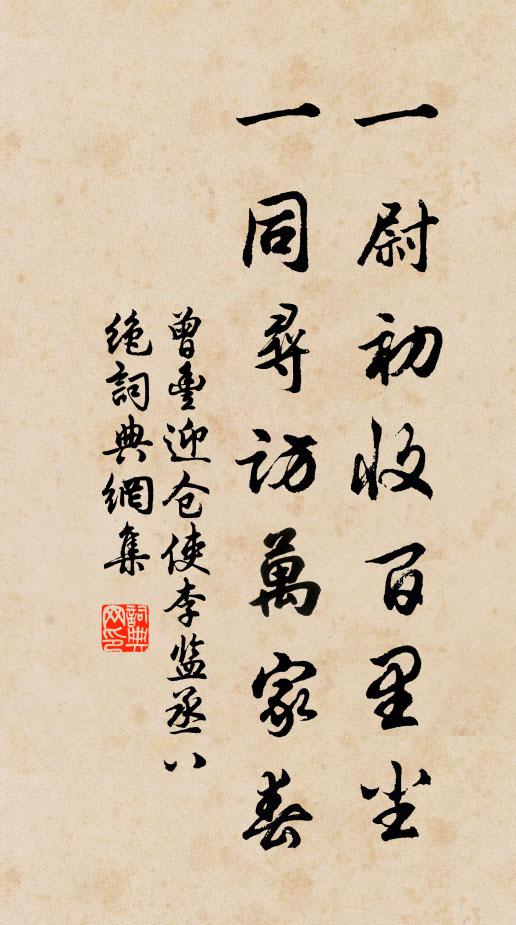 一尉初收百里尘
一同尋访萬家春
曾豐迎仓使李监丞八
绝詞典網集
詞典网印